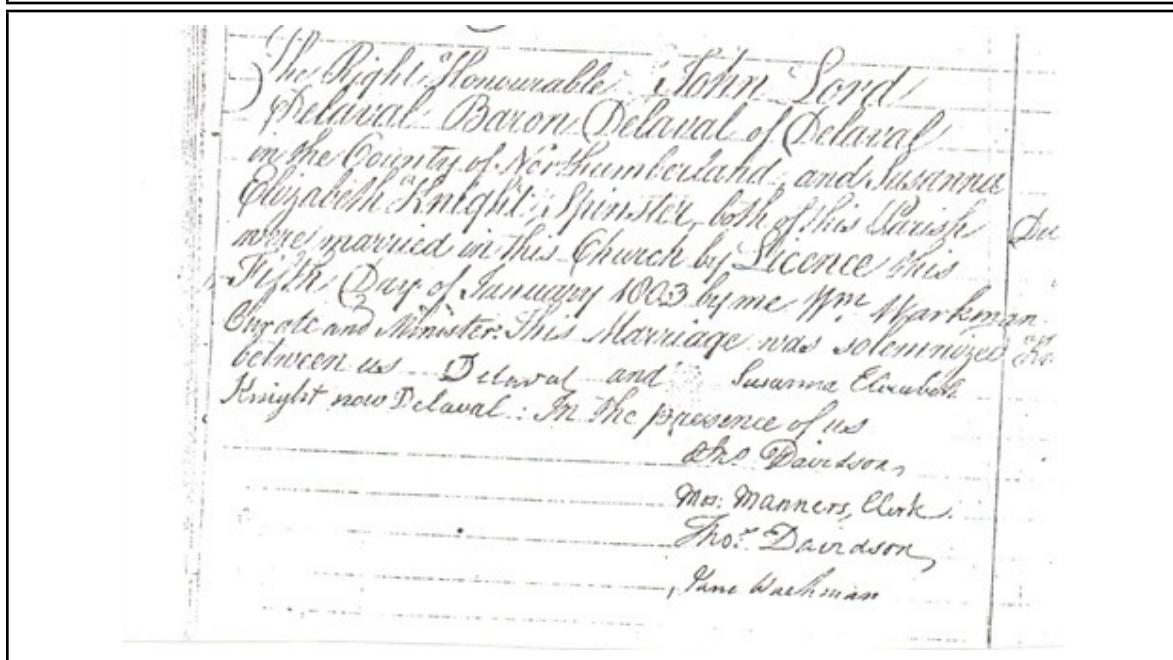 The Right Honourable John Lord
Delaval Baron Delaval of Delaval
in the County of Northumberland, and Susanna
Elizabeth Knight Spinster, both of this Parish
were married in this Church by Licence this
Fifth Day of January 1803 by me Wm. Warkman
Curate and Minister. This Marriage was solemnized
between us Delaval and Susanna Elizabeth
Knight now Delaval: In the presence of us
Jno. Davidson,
Manners, Clerk.
Thos. Davidson,
Jane